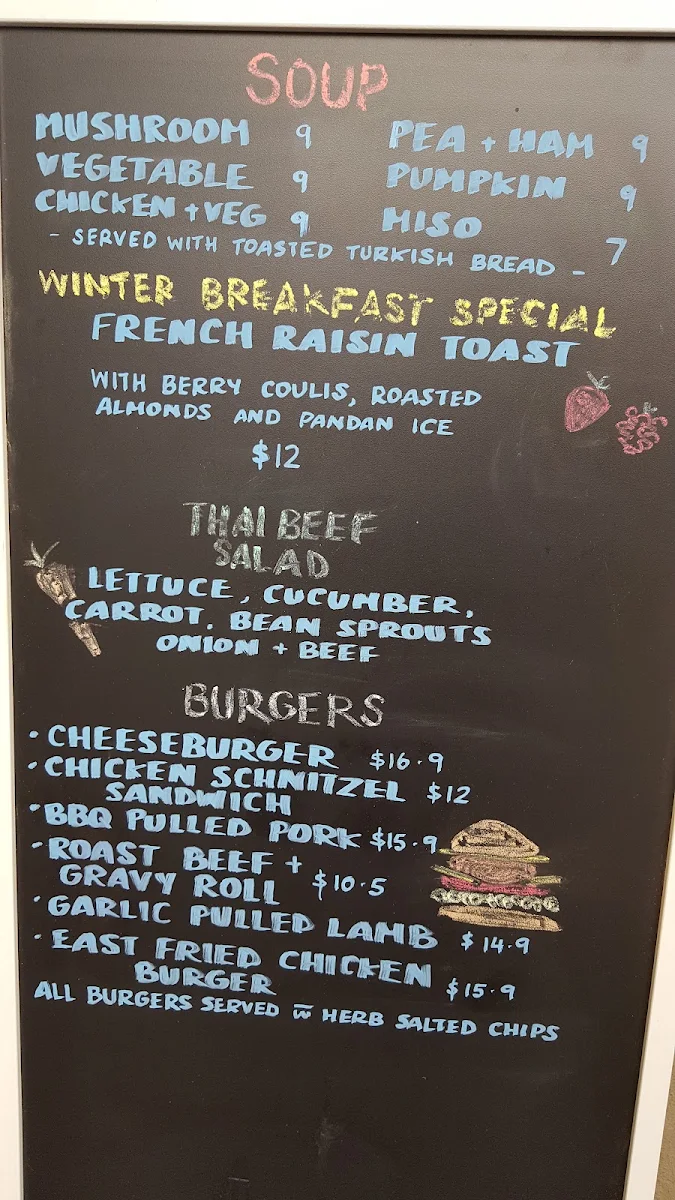 SOUP
MUSHROOM 9 PEA + HAM 9
VEGETABLE 9 PUMPKIN 9
CHICKEN + VEG 9 MISO 7
- SERVED WITH TOASTED TURKISH BREAD -
WINTER BREAKFAST SPECIAL
FRENCH RAISIN TOAST
WITH BERRY COULIS, ROASTED
ALMONDS AND PANDAN ICE
$12
THAI BEEF
SALAD
LETTUCE, CUCUMBER,
CARROT, BEAN SPROUTS
ONION + BEEF
BURGERS
· CHEESEBURGER $16.9
· CHICKEN SCHNITZEL $12
SANDWICH
· BBQ PULLED PORK $15.9
· ROAST BEEF +
GRAVY ROLL $10.5
· GARLIC PULLED LAMB $14.9
· EAST FRIED CHICKEN
BURGER $15.9
ALL BURGERS SERVED w̅ HERB SALTED CHIPS